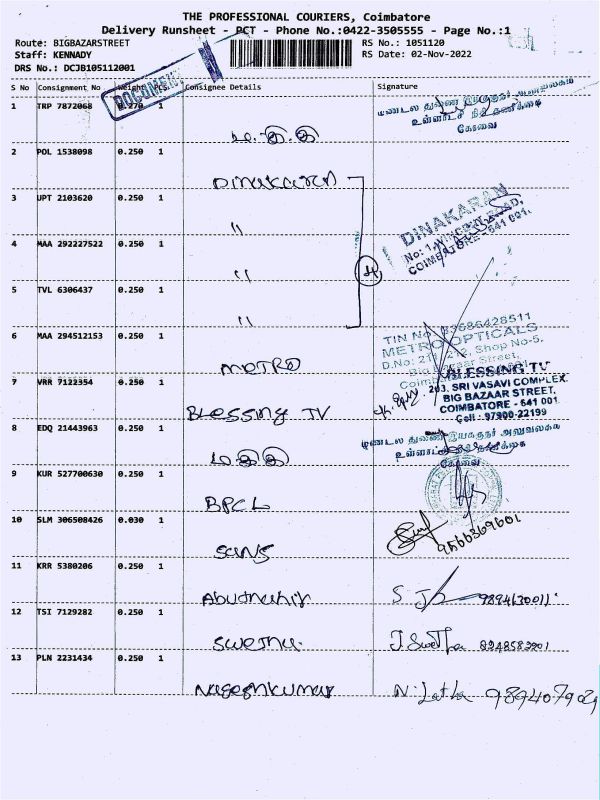 THE PROFESSIONAL COURIERS, Coimbatore
Delivery Runsheet - PCT - Phone No.:0422-3505555 - Page No.:1
Route: BIGBAZARSTREET
Staff: KENNADY
DRS No.: DCJB105112001
RS No.: 1051120
RS Date: 02-Nov-2022
DOCUMENT
S No Consignment No Weight PCS. Consignee Details Signature
1 TRP 7872068
மண்டல துணை இயக்குநர் அலுவலகம்
உள்ளாட்சி நிதி தணிக்கை
கோவை
2 POL 1538098 0.250 1 Dinakaran
3 UPT 2103620 0.250 1 "
DINAKARAN
COIMBATORE - 641 001.
4 MAA 292227522 0.250 1 "
4
5 TVL 6306437 0.250 1 "
6 MAA 294512153 0.250 1 METRO
TIN No. 33686428511
METRO OPTICALS
Shop No-5,
Big Bazaar Street,
7 VRR 7122354 0.250 1 Blessing TV
BLESSING TV
203, SRI VASAVI COMPLEX
BIG BAZAAR STREET,
COIMBATORE - 641 001
Cell : 97900-22199
8 EDQ 21443963 0.250 1
மண்டல துணை இயக்குநர் அலுவலகம்
உள்ளாட்சி நிதி தணிக்கை
கோவை
9 KUR 527700630 0.250 1 BPCL
10 SLM 306508426 0.030 1 sans
9566369601
11 KRR 5380206 0.250 1
12 TSI 7129282 0.250 1 Swetha. J. Swetha
13 PLN 2231434 0.250 1 Nageshkumar N. Latha